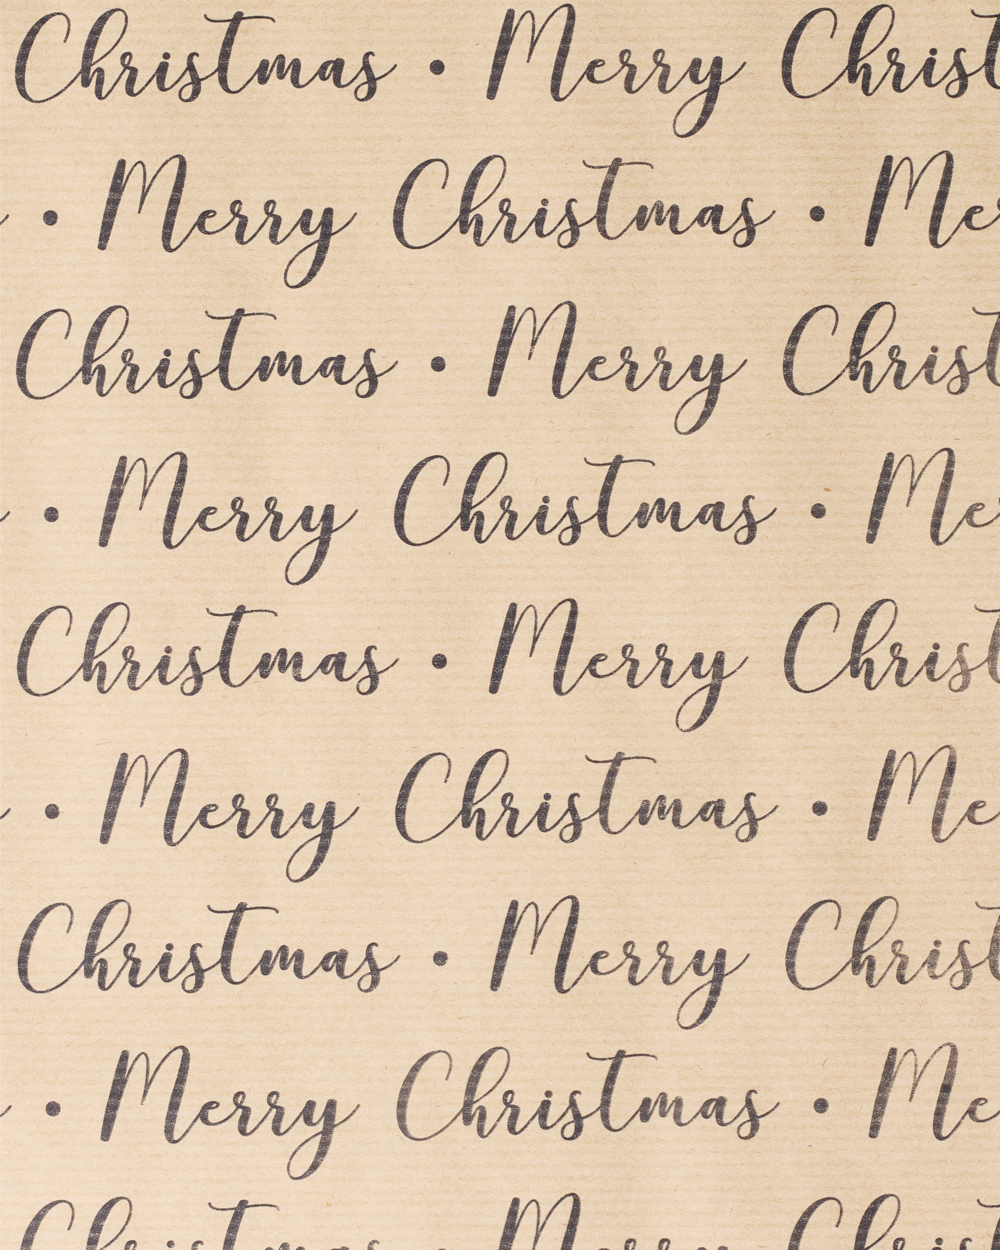 Christmas • Merry Christ
• Merry Christmas • Me
Christmas • Merry Christ
• Merry Christmas • Me
Christmas • Merry Christ
• Merry Christmas • Me
Christmas • Merry Christ
• Merry Christmas • Me
Christmas • Merry Christ